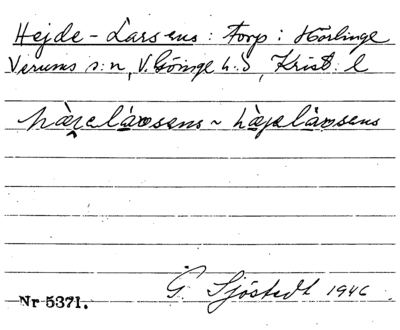 Hejde-Larsens: Torp: Hörlinge
Verums s:n, V. Göinge h:d, Krist: l
hæjelàrsens ~ hàjelàrsens
G. Sjöstedt 1946
Nr 5371.